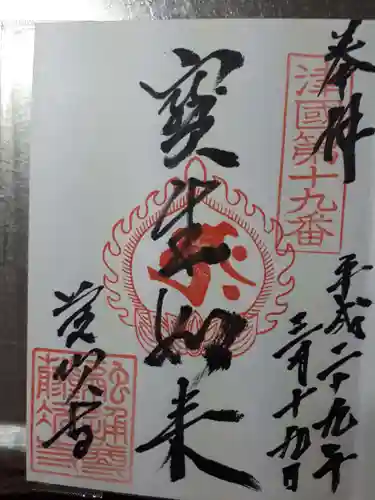 奉拝
津國第十九番
平成二十九年
三月十九日
寳生如来
藤次寺